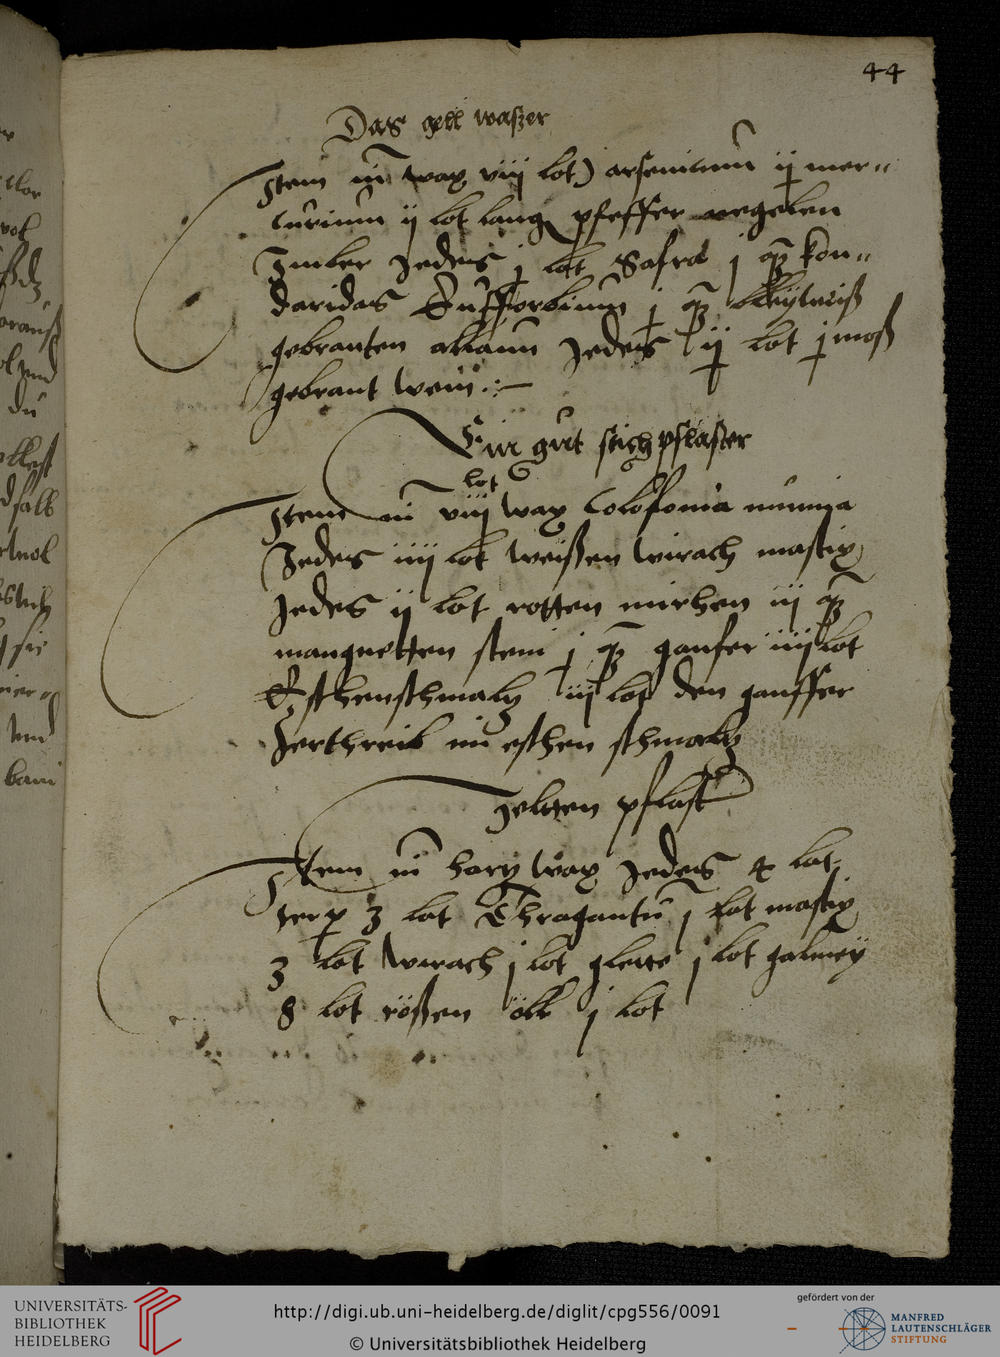 44
Das gell waszer
Item nim wax viij lot arsenicum ij mer-
curium ij lot lang pfeffer negelen
Imber Jedes j lot Safra j q kon-
daridas Eufforbium j q bleyweiß
gebranten alaun Jedes ij lot j moß
gebrant wein
Ein gut stich pflaster
lot
Item nim viij wax Colofonia mumia
Jedes iiij lot weißen wirach mastix
Jedes ij lot rotten mirhen iij q
mangnetten stein j q ganfer iiij lot
Eschenschmalz iij lot den ganffer
Zerthreib im eschen schmalz
Item nim harz wax Jedes 4 lot
3 lot Thragantu j lot mastix
3 lot wirach j lot glette j lot galmey
8 lot rößen öll j lot
UNIVERSITÄTS-
BIBLIOTHEK
HEIDELBERG
http://digi.ub.uni-heidelberg.de/diglit/cpg556/0091
© Universitätsbibliothek Heidelberg
gefördert von der
MANFRED
LAUTENSCHLÄGER
STIFTUNG